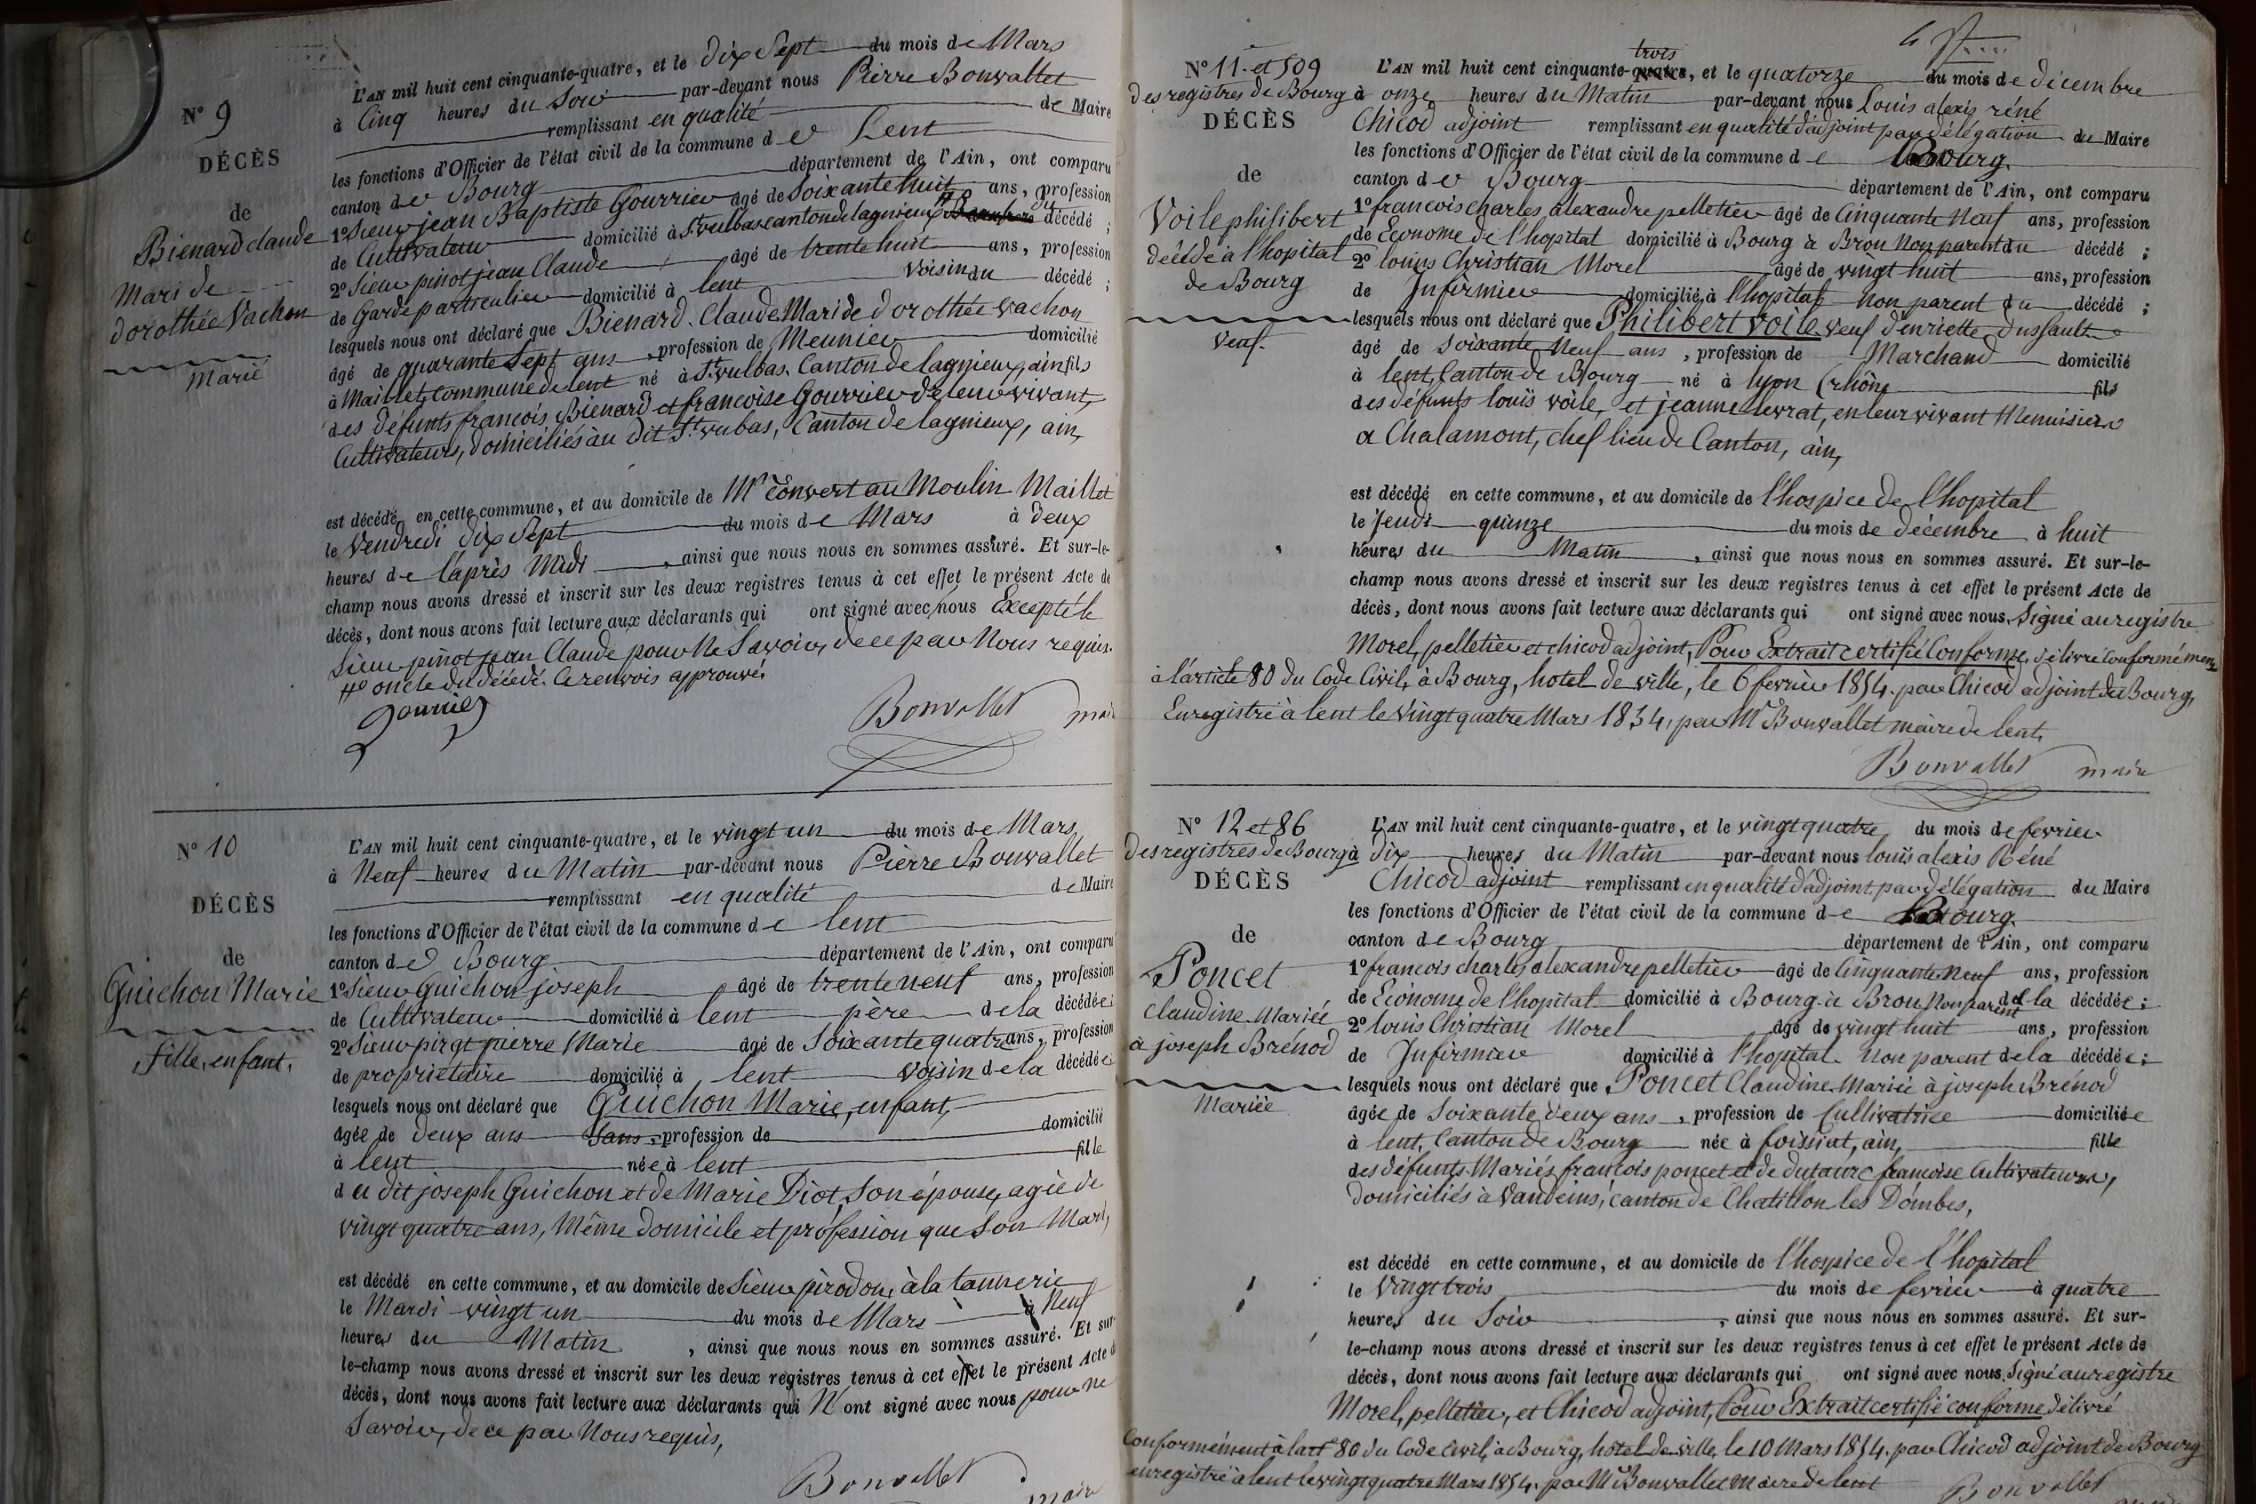 N° 9
DÉCÈS
de
Bienard claude
Mari de
dorothée Vachon
Marié
L'AN mil huit cent cinquante-quatre, et le dix Sept du mois de Mars
à Cinq heures du Soir par-devant nous Pierre Bonvallet
remplissant en qualité de Maire
les fonctions d'Officier de l'état civil de la commune de Lent
canton de Bourg département de l'Ain, ont comparu
1° Sieur jean Baptiste Gourrier âgé de Soixante huit ans, profession
de Cultivateur domicilié à St. vulbas canton de lagnieux du décédé ;
2° Sieur pinot jean Claude âgé de trente huit ans, profession
de Garde particulier domicilié à lent voisin du décédé ;
lesquels nous ont déclaré que Bienard Claude Mari de dorothée vachon
âgé de quarante Sept ans, profession de Meunier domicilié
à Maillet, Commune de lent né à St. vulbas, Canton de lagnieux, ain fils
des défunts françois Bienard et francoise Gourrier de leur vivant,
Cultivateurs, domiciliés au dit St. vulbas, Canton de lagnieux, ain,
est décédé en cette commune, et au domicile de Mr Convert au Moulin Maillet
le Vendredi dix Sept du mois de Mars à deux
heures de l'après Midi, ainsi que nous nous en sommes assuré. Et sur-le-
champ nous avons dressé et inscrit sur les deux registres tenus à cet effet le présent Acte de
décès, dont nous avons fait lecture aux déclarants qui ont signé avec nous Excepté le
Sieur pinot jean Claude pour Ne Savoir, de ce par Nous requis.
# oncle du décédé. Ce renvois approuvé.
Gourrier
Bonvallet maire
N° 10
DÉCÈS
de
Guichon Marie
Fille, enfant.
L'AN mil huit cent cinquante-quatre, et le vingt un du mois de Mars
à Neuf heures du Matin par-devant nous Pierre Bonvallet
remplissant en qualité de Maire
les fonctions d'Officier de l'état civil de la commune de lent
canton de Bourg département de l'Ain, ont comparu
1° Sieur Guichon joseph âgé de trente neuf ans, profession
de Cultivateur domicilié à lent père de la décédée ;
2° Sieur pierre Marie âgé de Soixante quatre ans, profession
de propriétaire domicilié à lent voisin de la décédée
lesquels nous ont déclaré que Guichon Marie, enfant,
âgée de deux ans Sans profession de domicilié
à lent née à lent fille
du dit joseph Guichon et de Marie Diot, Son épouse, agée de
vingt quatre ans, Même domicile et profession que Son Mari,
est décédé en cette commune, et au domicile de Sieur pirodon, à la tannerie
le Mardi vingt un du mois de Mars à Neuf
heures du Matin, ainsi que nous nous en sommes assuré. Et sur-
le-champ nous avons dressé et inscrit sur les deux registres tenus à cet effet le présent Acte de
décès, dont nous avons fait lecture aux déclarants qui N'ont signé avec nous pour ne
Savoir, de ce par Nous requis,
Bonvallet maire
N° 11 et 509
des registres de Bourg
DÉCÈS
de
Voile philibert
décédé à l'hopital
de Bourg
veuf.
L'AN mil huit cent cinquante-quatre trois, et le quatorze du mois de décembre
à onze heures du Matin par-devant nous Louis alexis réné
Chicod adjoint remplissant en qualité d'adjoint par délégation du Maire
les fonctions d'Officier de l'état civil de la commune de Bourg
canton de Bourg département de l'Ain, ont comparu
1° francois charles alexandre pelletier âgé de Cinquante Neuf ans, profession
de Econome de l'hopital domicilié à Bourg à Brou Non parent du décédé ;
2° louis Christian Morel âgé de vingt huit ans, profession
de Infirmier domicilié à l'hopital non parent du décédé ;
lesquels nous ont déclaré que Philibert voile veuf d'enriette dussault
âgé de Soixante Neuf ans, profession de Marchand domicilié
à lent, Canton de Bourg né à lyon (rhône fils
des défunts louis voile, et jeanne levrat, en leur vivant Menuisiers
à Chalamont, chef lieu de Canton, ain,
est décédé en cette commune, et au domicile de l'hospice de l'hopital
le Jeudi quinze du mois de décembre à huit
heures du Matin, ainsi que nous nous en sommes assuré. Et sur-le-
champ nous avons dressé et inscrit sur les deux registres tenus à cet effet le présent Acte de
décès, dont nous avons fait lecture aux déclarants qui ont signé avec nous. Signé au registre
Morel, pelletier et chicod adjoint, Pour Extrait certifié Conforme, délivré Conformément
à l'article 80 du Code Civil, à Bourg, hotel de ville, le 6 fevrier 1854. par Chicod adjoint de Bourg,
Enregistré à lent le vingt quatre Mars 1854, par Mr Bonvallet maire de lent.
Bonvallet maire
N° 12 et 86
des registres de Bourg
DÉCÈS
de
Poncet
Claudine Mariée
à joseph Brénod
Mariée
L'AN mil huit cent cinquante-quatre, et le vingt quatre du mois de fevrier
à dix heures du Matin par-devant nous louis alexis Réné
Chicod adjoint remplissant en qualité d'adjoint par délégation du Maire
les fonctions d'Officier de l'état civil de la commune de Bourg
canton de Bourg département de l'Ain, ont comparu
1° francois charles alexandre pelletier âgé de Cinquante Neuf ans, profession
de Econome de l'hopital domicilié à Bourg à Brou Non parent de la décédée ;
2° louis Christian Morel âgé de vingt huit ans, profession
de Infirmier domicilié à l'hopital. Non parent de la décédée ;
lesquels nous ont déclaré que Poncet Claudine Mariée à joseph Brénod
âgée de Soixante deux ans, profession de Cultivatrice domiciliée
à lent, Canton de Bourg née à foissiat, ain, fille
des défunts Mariés francois poncet et de dutaure francoise Cultivateurs,
domiciliés à Vandeins, canton de Chatillon les Dombes,
est décédé en cette commune, et au domicile de l'hospice de l'hopital
le Vingt trois du mois de fevrier à quatre
heures du Soir, ainsi que nous nous en sommes assuré. Et sur-
le-champ nous avons dressé et inscrit sur les deux registres tenus à cet effet le présent Acte de
décès, dont nous avons fait lecture aux déclarants qui ont signé avec nous. Signé au registre
Morel, pelletier, et Chicod adjoint, Pour Extrait certifié conforme délivré
Conformément à l'art 80 du Code Civil, à Bourg, hotel de ville, le 10 Mars 1854. par Chicod adjoint de Bourg
enregistré à lent le vingt quatre Mars 1854. par Mr Bonvallet Maire de lent
Bonvallet